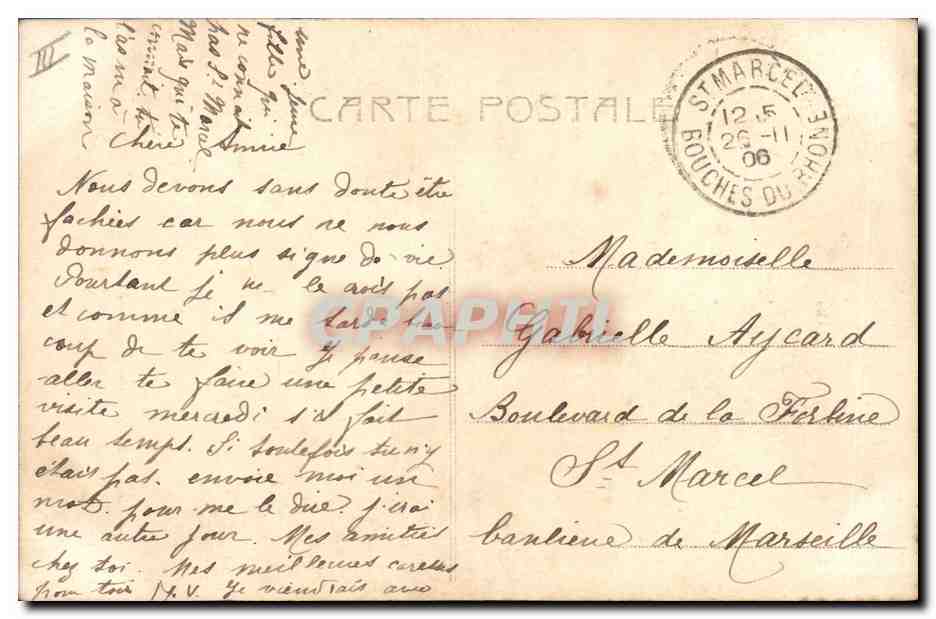 CARTE POSTALE
III
ST MARCEL
12 5
26 -11
06
BOUCHES DU RHONE
Chère Amie
Nous devons sans doute être
fachées car nous ne nous
donnons plus signe de vie
Pourtant je ne le crois pas
et comme il me tarde beau
coup de te voir Je pense
aller te faire une petite
visite mercredi s'il fait
beau temps. Si toutefois tu n'y
étais pas envoie moi un
mot pour me le dire j'irai
une autre jour. Mes amitiés
chez toi. Mes meilleures caresses
pour toi M.V. Je viendrais avec
une jeune
fille qui
ne connait
pas St Marcel
Mais qui te
connait tu
l'as vu à
la maison
Mademoiselle
Gabrielle Aycard
Boulevard de la Forbine
St Marcel
banlieue de Marseille
CPAPHIL